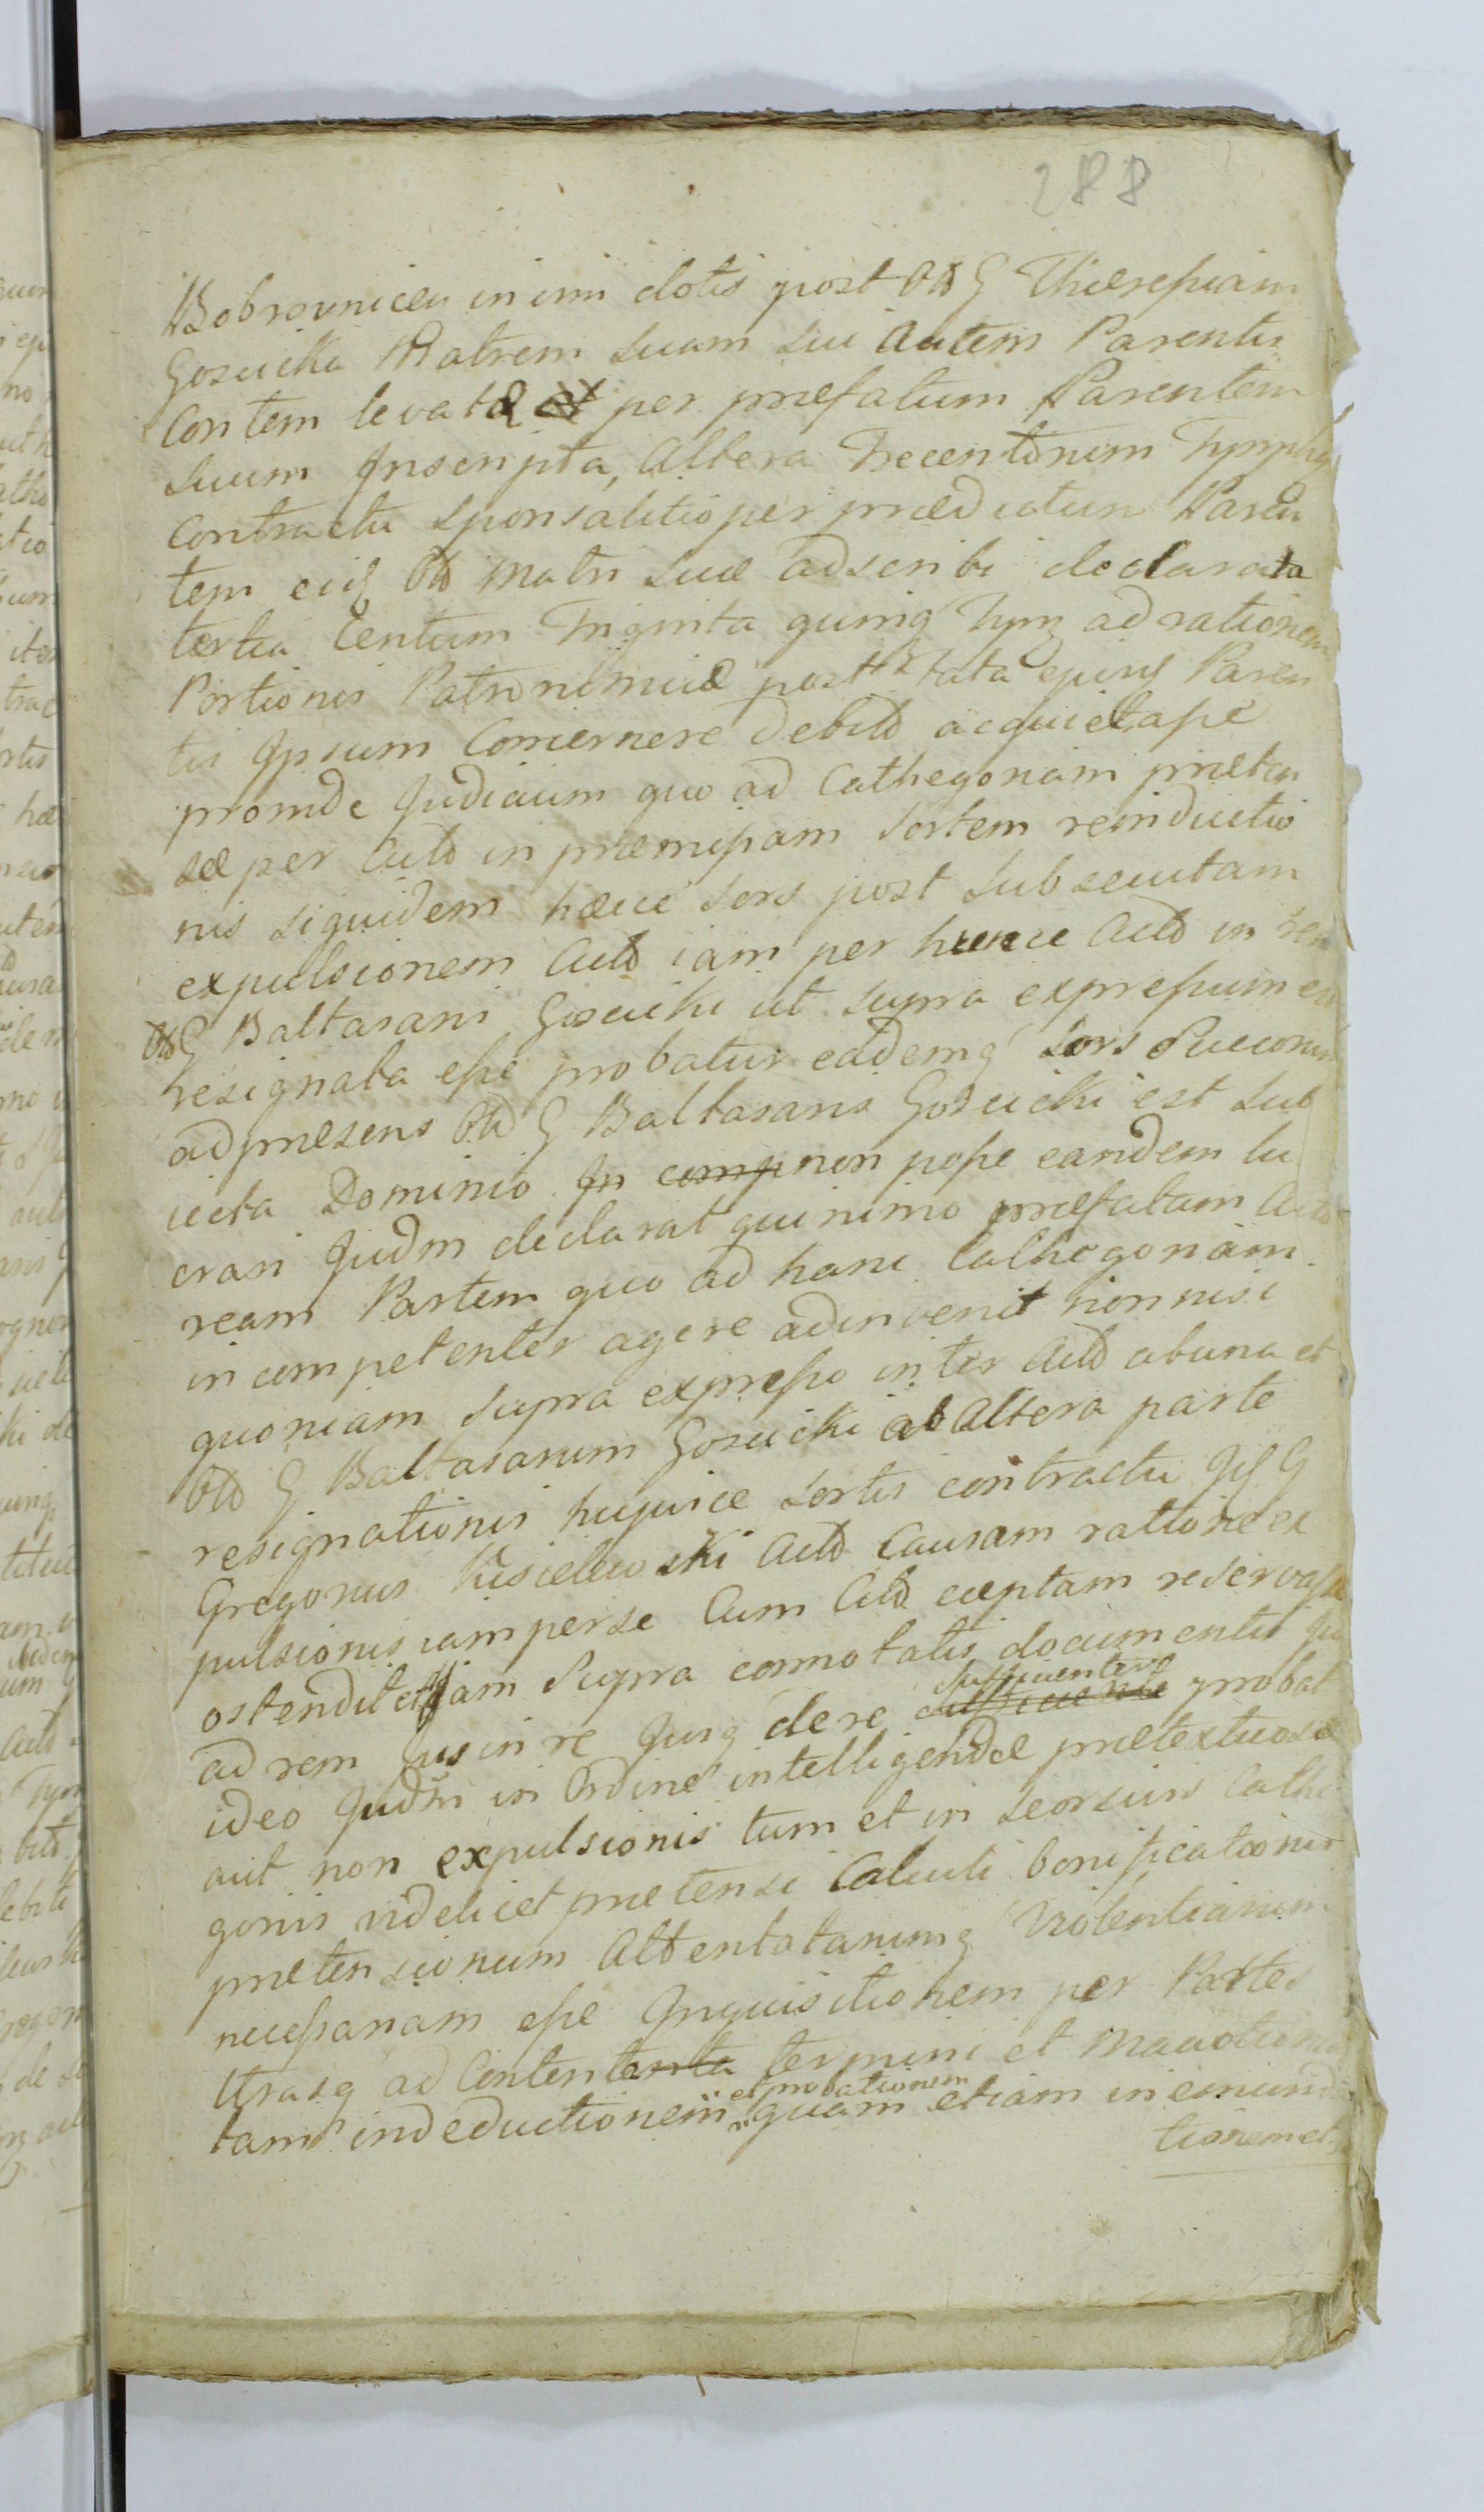 288
Bobrovnicen in imi dotis post Old G Theresiam
Gosucka Matrem suam sui autem Parentis
Contem levata per præfatum Parentem
suum Inscripta, Altera Trecentorum Tymph
Contractu Sponsalitio per prædictum Paren
tem eiq Old Matri suæ adscribi declarata
tertia Centum Triginta quinq Tym ad rationem
Portionis Patrimoniæ post fata ejusq Paren
tis Ipsum Concernere debito acquietasse
proinde Judicium quo ad Cathegoriam præten
sæ per Acto in præmissam Sortem reinductio
nis siquidem hæcce Sors post subsecutam
expulsionem Acto iam per hunce Acto in rem
Old G Baltasaris Gosucki ut supra expressum est
resignata esse probatur eademq Sors
ad præsens Old G Baltasaris Gosucki est sub
iecta Dominio In comp non posse eandem lu
crari Judm declarat quinimo præfatam Acto
ream Partem quo ad hanc Cathegoriam
incompetenter agere adinvenit nonnisi
quoniam supra expresso inter Acto ab una et
Old G Baltasarum Gosucki ab Altera parte
resignationis hujusce Sortis contractu G
Gregorius Kisielewski Acto Causam ratione ex
pulsionis iam per se Cum Cito cæptam reservasse
ostendit etiam Supra connotatis documentis Jus
ad rem Jus in re Jurq dere sufficienter probat
ideo Judm in Ordine intelligendæ prætextuosæ
aut non expulsionis tum et in seorsivis Cathe
goriis videlicet prætensi Calculi bonificationis
prætensionum Attentatarumq Violentiarum
necessariam esse Inquisitionem per Partes
Utrasq ad Contenta termini et
tam in deductionem et probationem quam etiam in emunda
tionem et